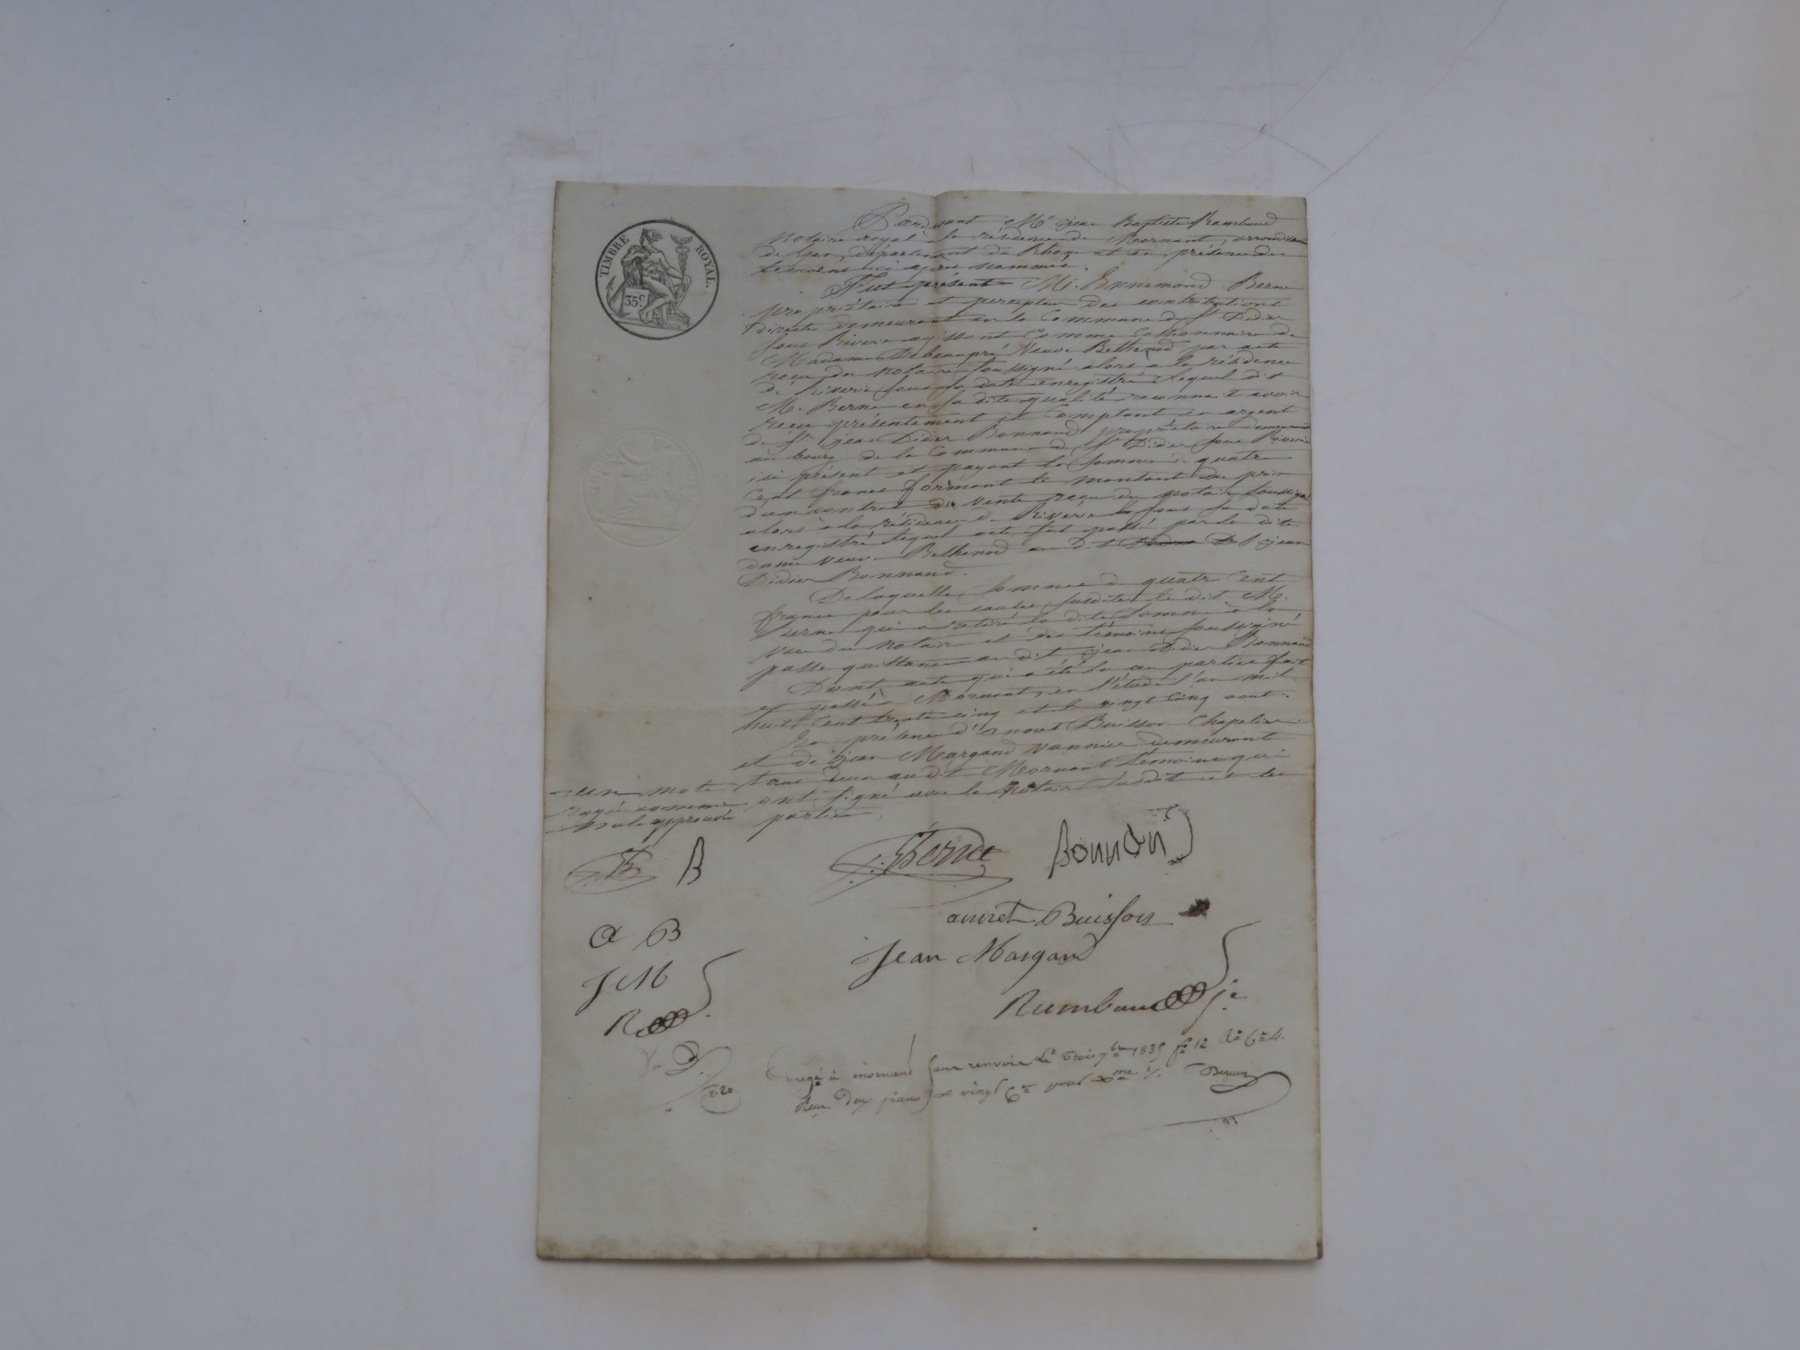 TIMBRE ROYAL.
35c
Pardevant Me jean Baptiste Rambaud
Notaire royal à la résidence de Mornant, arrond
de Lyon, département du Rhône et en présence des
témoins ci après nommés.
Fut présent M. Ennemond Berne
propriétaire et percepteur des contributions
directes demeurant en la Commune de St Didier
sous Riverie agissant comme Cessionnaire de
Madame veuve Bethenod par acte
reçu du notaire soussigné alors à la résidence
de Riverie sous sa date enregistré lequel dit
M. Berne en sa dite qualité reconnait avoir
reçu présentement Comptant en argent
de Sr jean Didier Bonnand propriétaire demeurant
au bourg de la Commune de St Didier sous Riverie
ici présent et payant la somme de quatre
Cent francs formant le montant du prix
d'un contrat de vente reçu du notaire soussigné
alors à la résidence de Riverie sous sa date
enregistré lequel acte fut passé par la dite
dame veuve Bethenod au dit jean
Didier Bonnand.
De laquelle somme de quatre Cent
francs pour les causes susdites le dit M.
Berne qui a retiré la dite somme à la
vue du notaire et des témoins soussignés
passe quittance au dit jean Didier Bonnand
Dont acte qui a été lu au parties fait
et passé à Mornant, en l'étude l'an mil
huit Cent trente cinq et le vingt Cinq aout.
En présence d'annet Buisson Chapelier
et de jean Margand vannier demeurant
tous deux au dit Mornant témoins qui
ont signé avec le Notaire susdit et les
parties.
un mot
rayé comme
nul approuvé
B
Berne
Bonnand
annet Buisson
a B
Jean Margand
J M
R
Rambaud
Enregé à mornant sans renvoi le trois 7bre 1835 fo 12 Ro Ce 4.
Reçu deux francs vingt Cmes
2.20